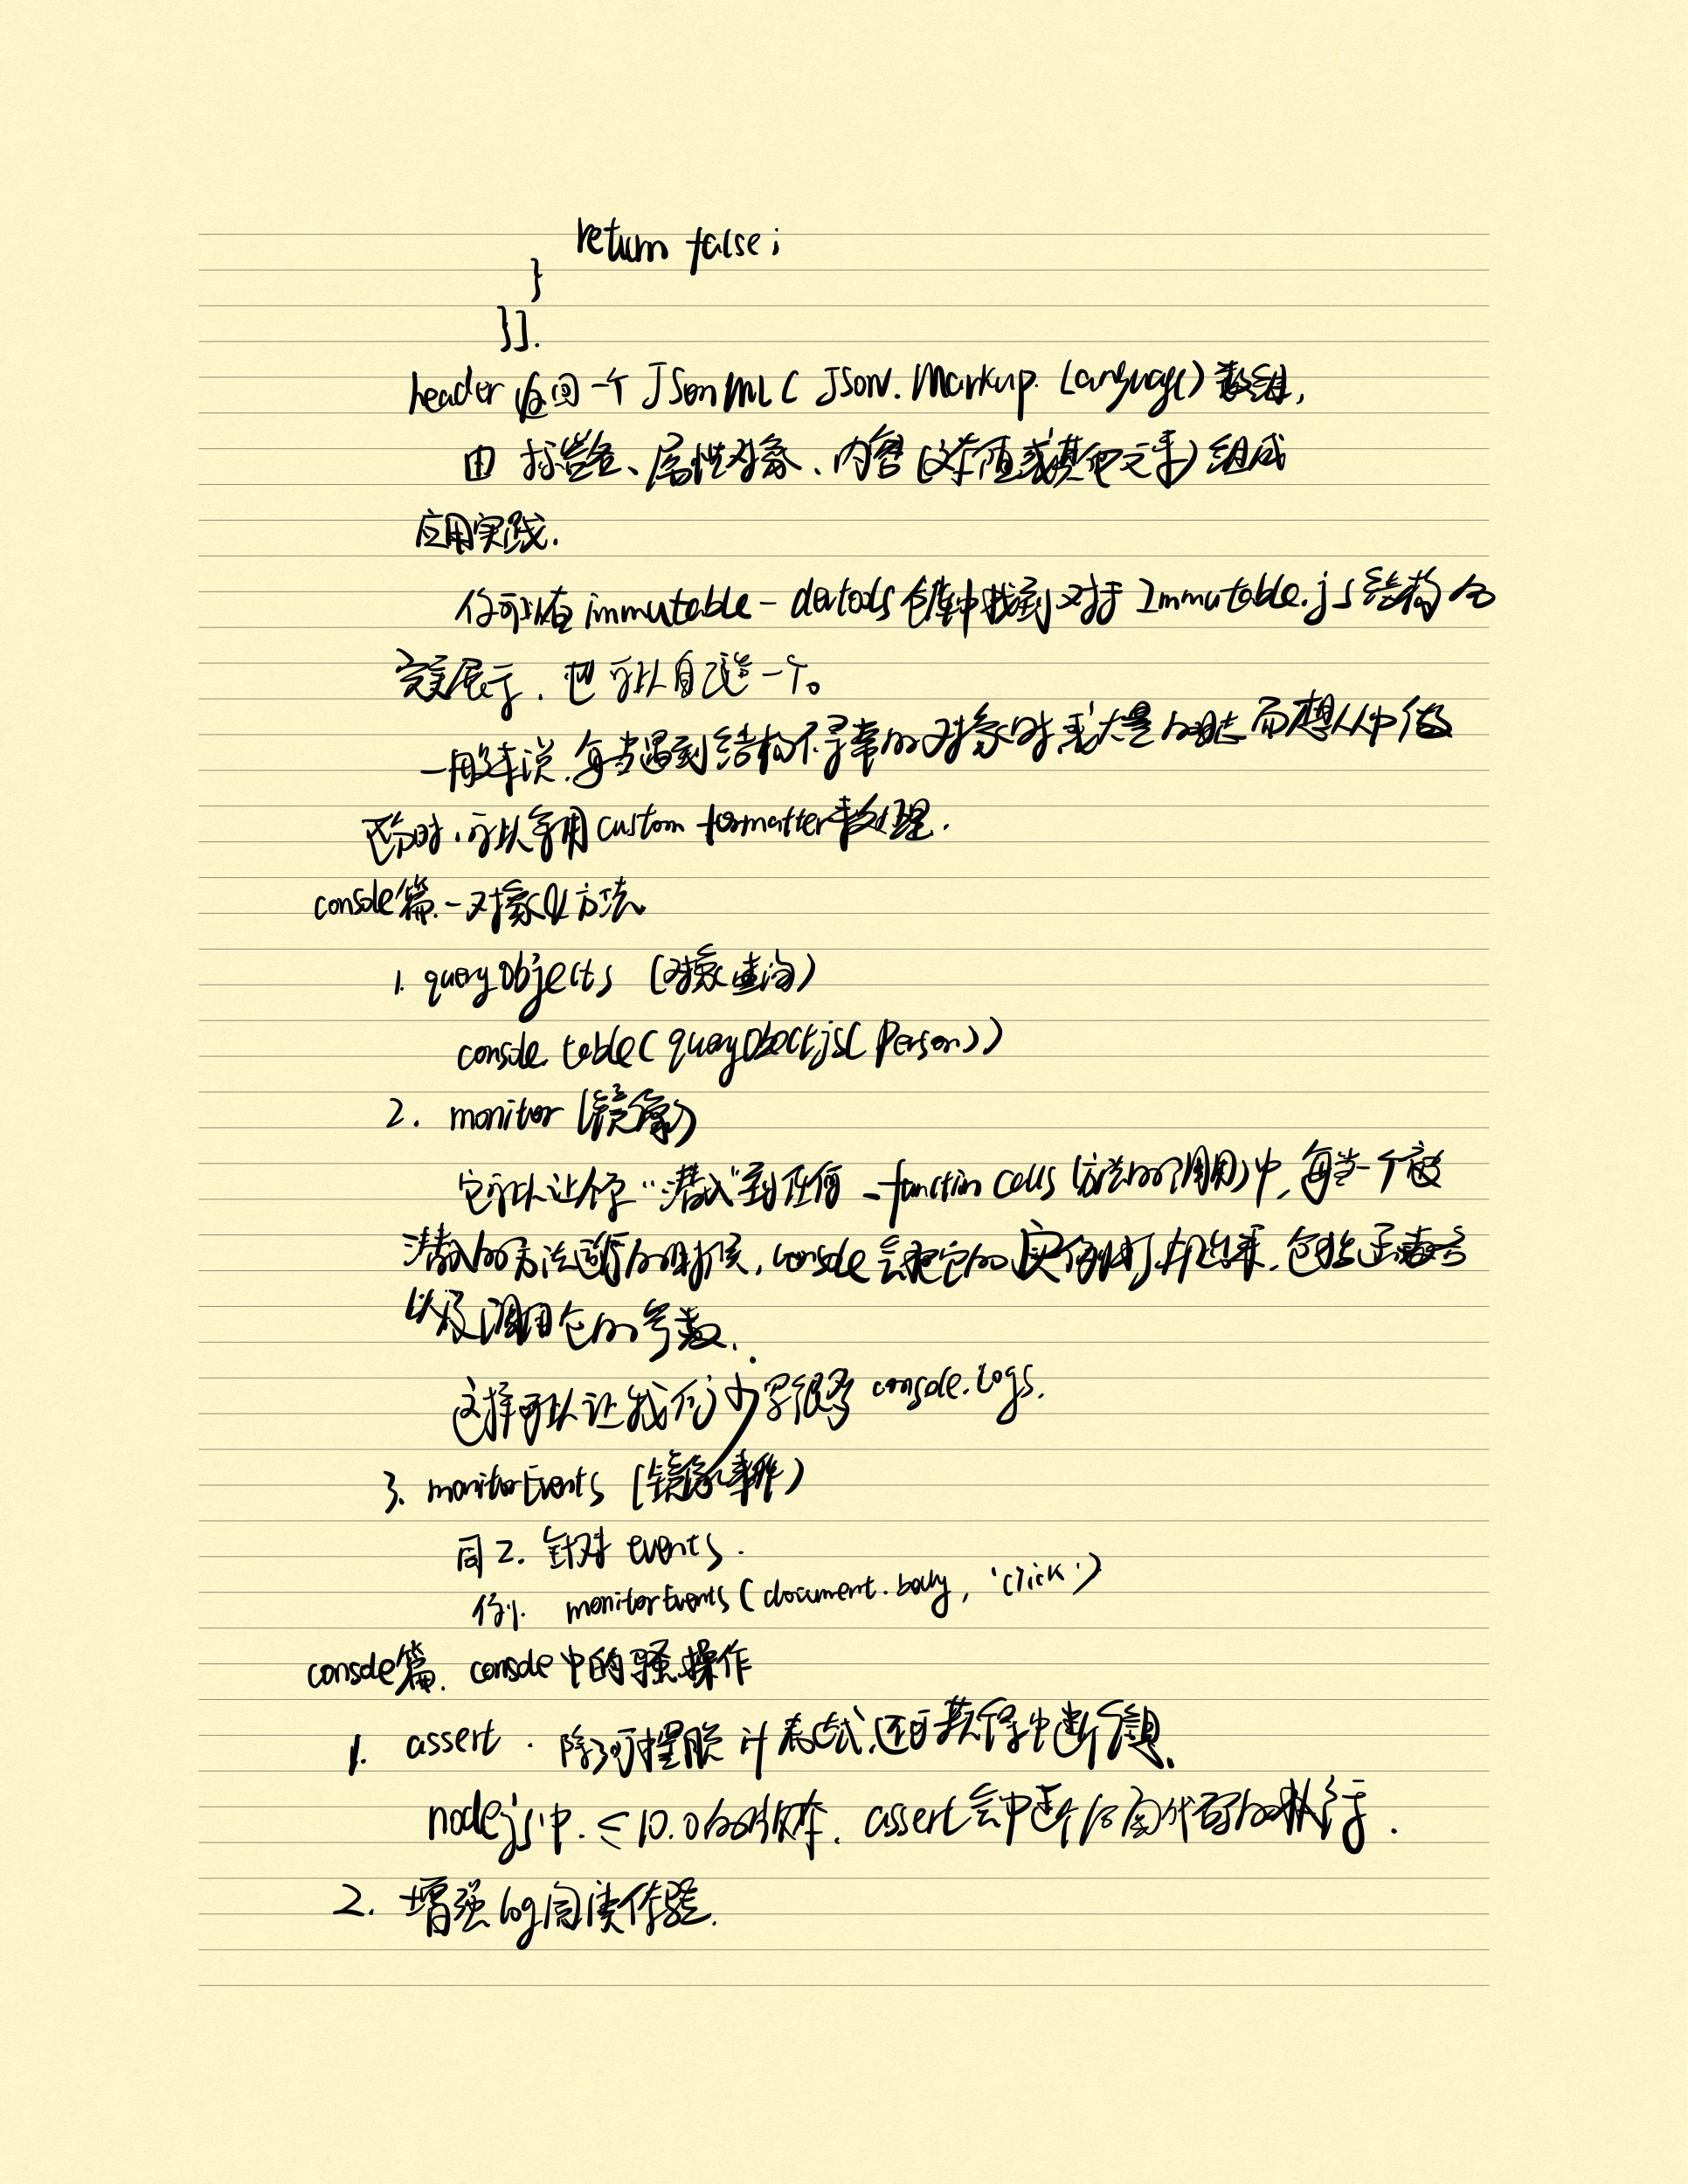 return false;
}
}].
header 返回一个 JsonML ( JSON. Markup. Language) 数组,
由 标签、属性对象、内容 (文本值或其他元素) 组成
应用实践.
你可以在 immutable - devtools 仓库中找到对于 Immutable.js 结构的
完美展示, 也可以自己造一个。
一般来说, 每当遇到结构不寻常的对象时或大量的日志而想从中做
区分时, 可以采用 custom formatter 来处理.
console篇 - 对象&方法
1. queryObjects (对象查询)
console. table( queryObectjs( Person))
2. monitor (镜像)
它可以让你 "潜入" 到任何 function calls (方法的调用) 中, 每当一个被
潜入的方法运行的时候, console 会把它的实例打印出来, 包括函数名
以及调用它的参数.
这样可以让我们少写很多 console.logs.
3. monitorEvents (镜像事件)
同 2. 针对 events.
例. monitorEvents ( document. body, 'click')
console篇. console 中的骚操作
1. assert. 除了可摆脱 if 表达式, 还可获得中断信息.
nodejs中. ≤ 10.0 的版本, assert 会中断后面代码的执行.
2. 增强 log 阅读体验.